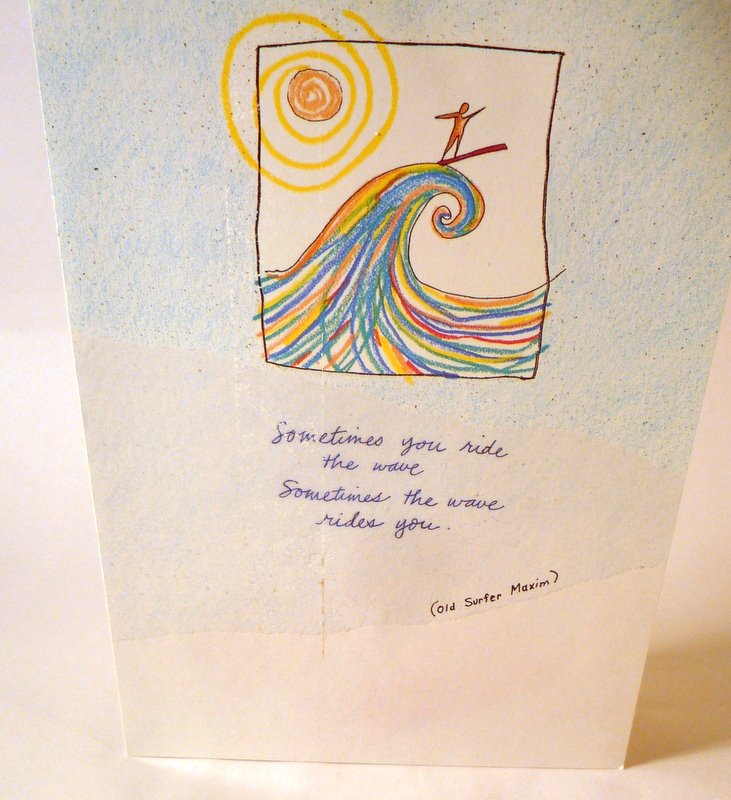 Sometimes you ride
the wave
Sometimes the wave
rides you.
(Old Surfer Maxim)